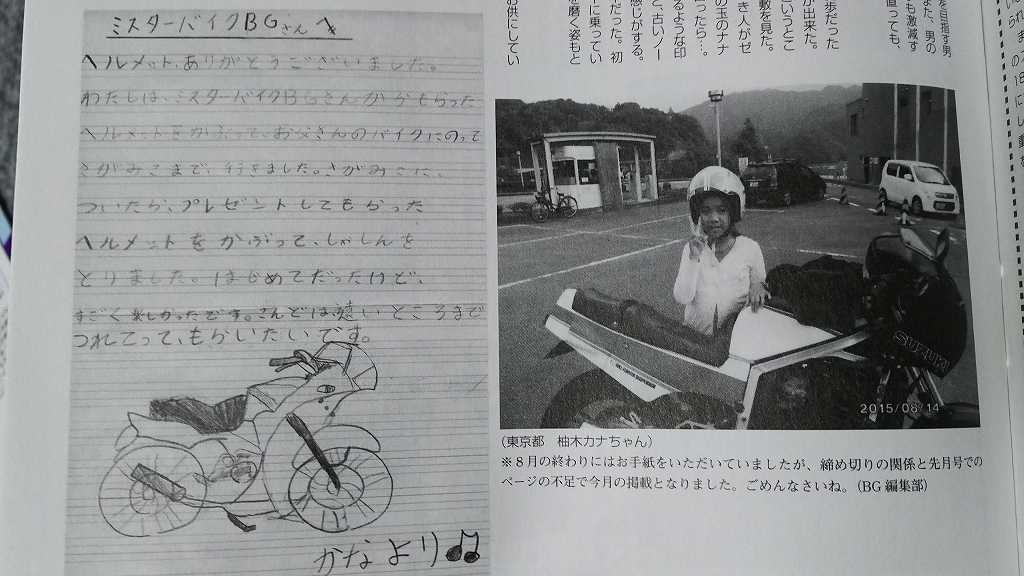 ミスターバイクBGさんへ
ヘルメット、ありがとうございました。
わたしは、ミスターバイクBGさんからもらった
ヘルメットをかぶって、お父さんのバイクにのって
さがみこまで、行きました。さがみこに、
ついたら、プレゼントしてもらった
ヘルメットをかぶって、しゃしんを
とりました。はじめてだったけど、
すごく楽しかったです。こんどは遠いところまで
つれてって、もらいたいです。
かなより
を目指す男
また、男の
も激減す
直っても、
歩だった
が出来た。
というとこ
敷を見た。
き人がゼ
の玉のナナ
ったら…。
るような印
と、古いノー
感じがする。
だった。初
ーに乗ってい
を磨く姿もと
お供にしてい
SUZUKI
2015/08/14
(東京都 柚木カナちゃん)
※８月の終わりにはお手紙をいただいていましたが、締め切りの関係と先月号での
ページの不足で今月の掲載となりました。ごめんなさいね。（BG 編集部）